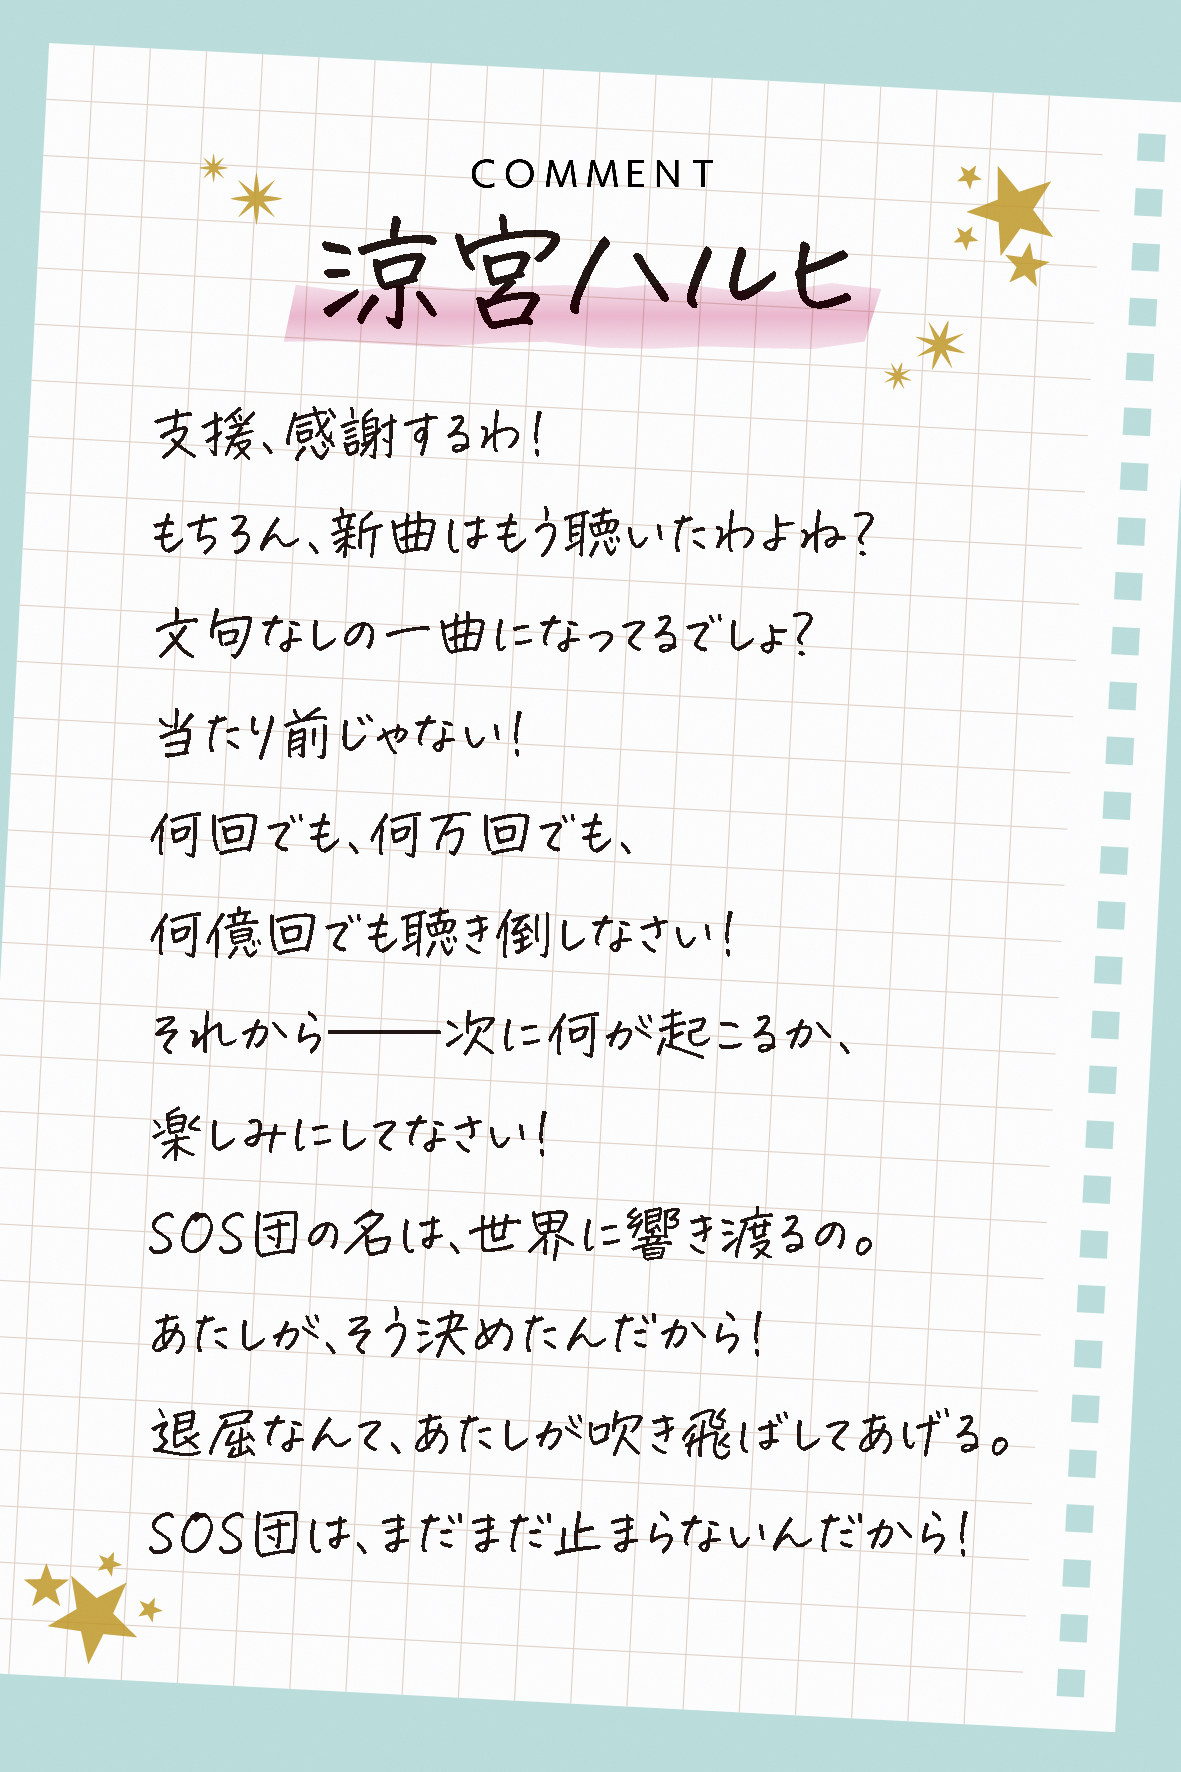 COMMENT
涼宮ハルヒ
支援、感謝するわ!
もちろん、新曲はもう聴いたわよね?
文句なしの一曲になってるでしょ?
当たり前じゃない!
何回でも、何万回でも、
何億回でも聴き倒しなさい!
それから――次に何が起こるか、
楽しみにしてなさい!
SOS団の名は、世界に響き渡るの。
あたしが、そう決めたんだから!
退屈なんて、あたしが吹き飛ばしてあげる。
SOS団は、まだまだ止まらないんだから!